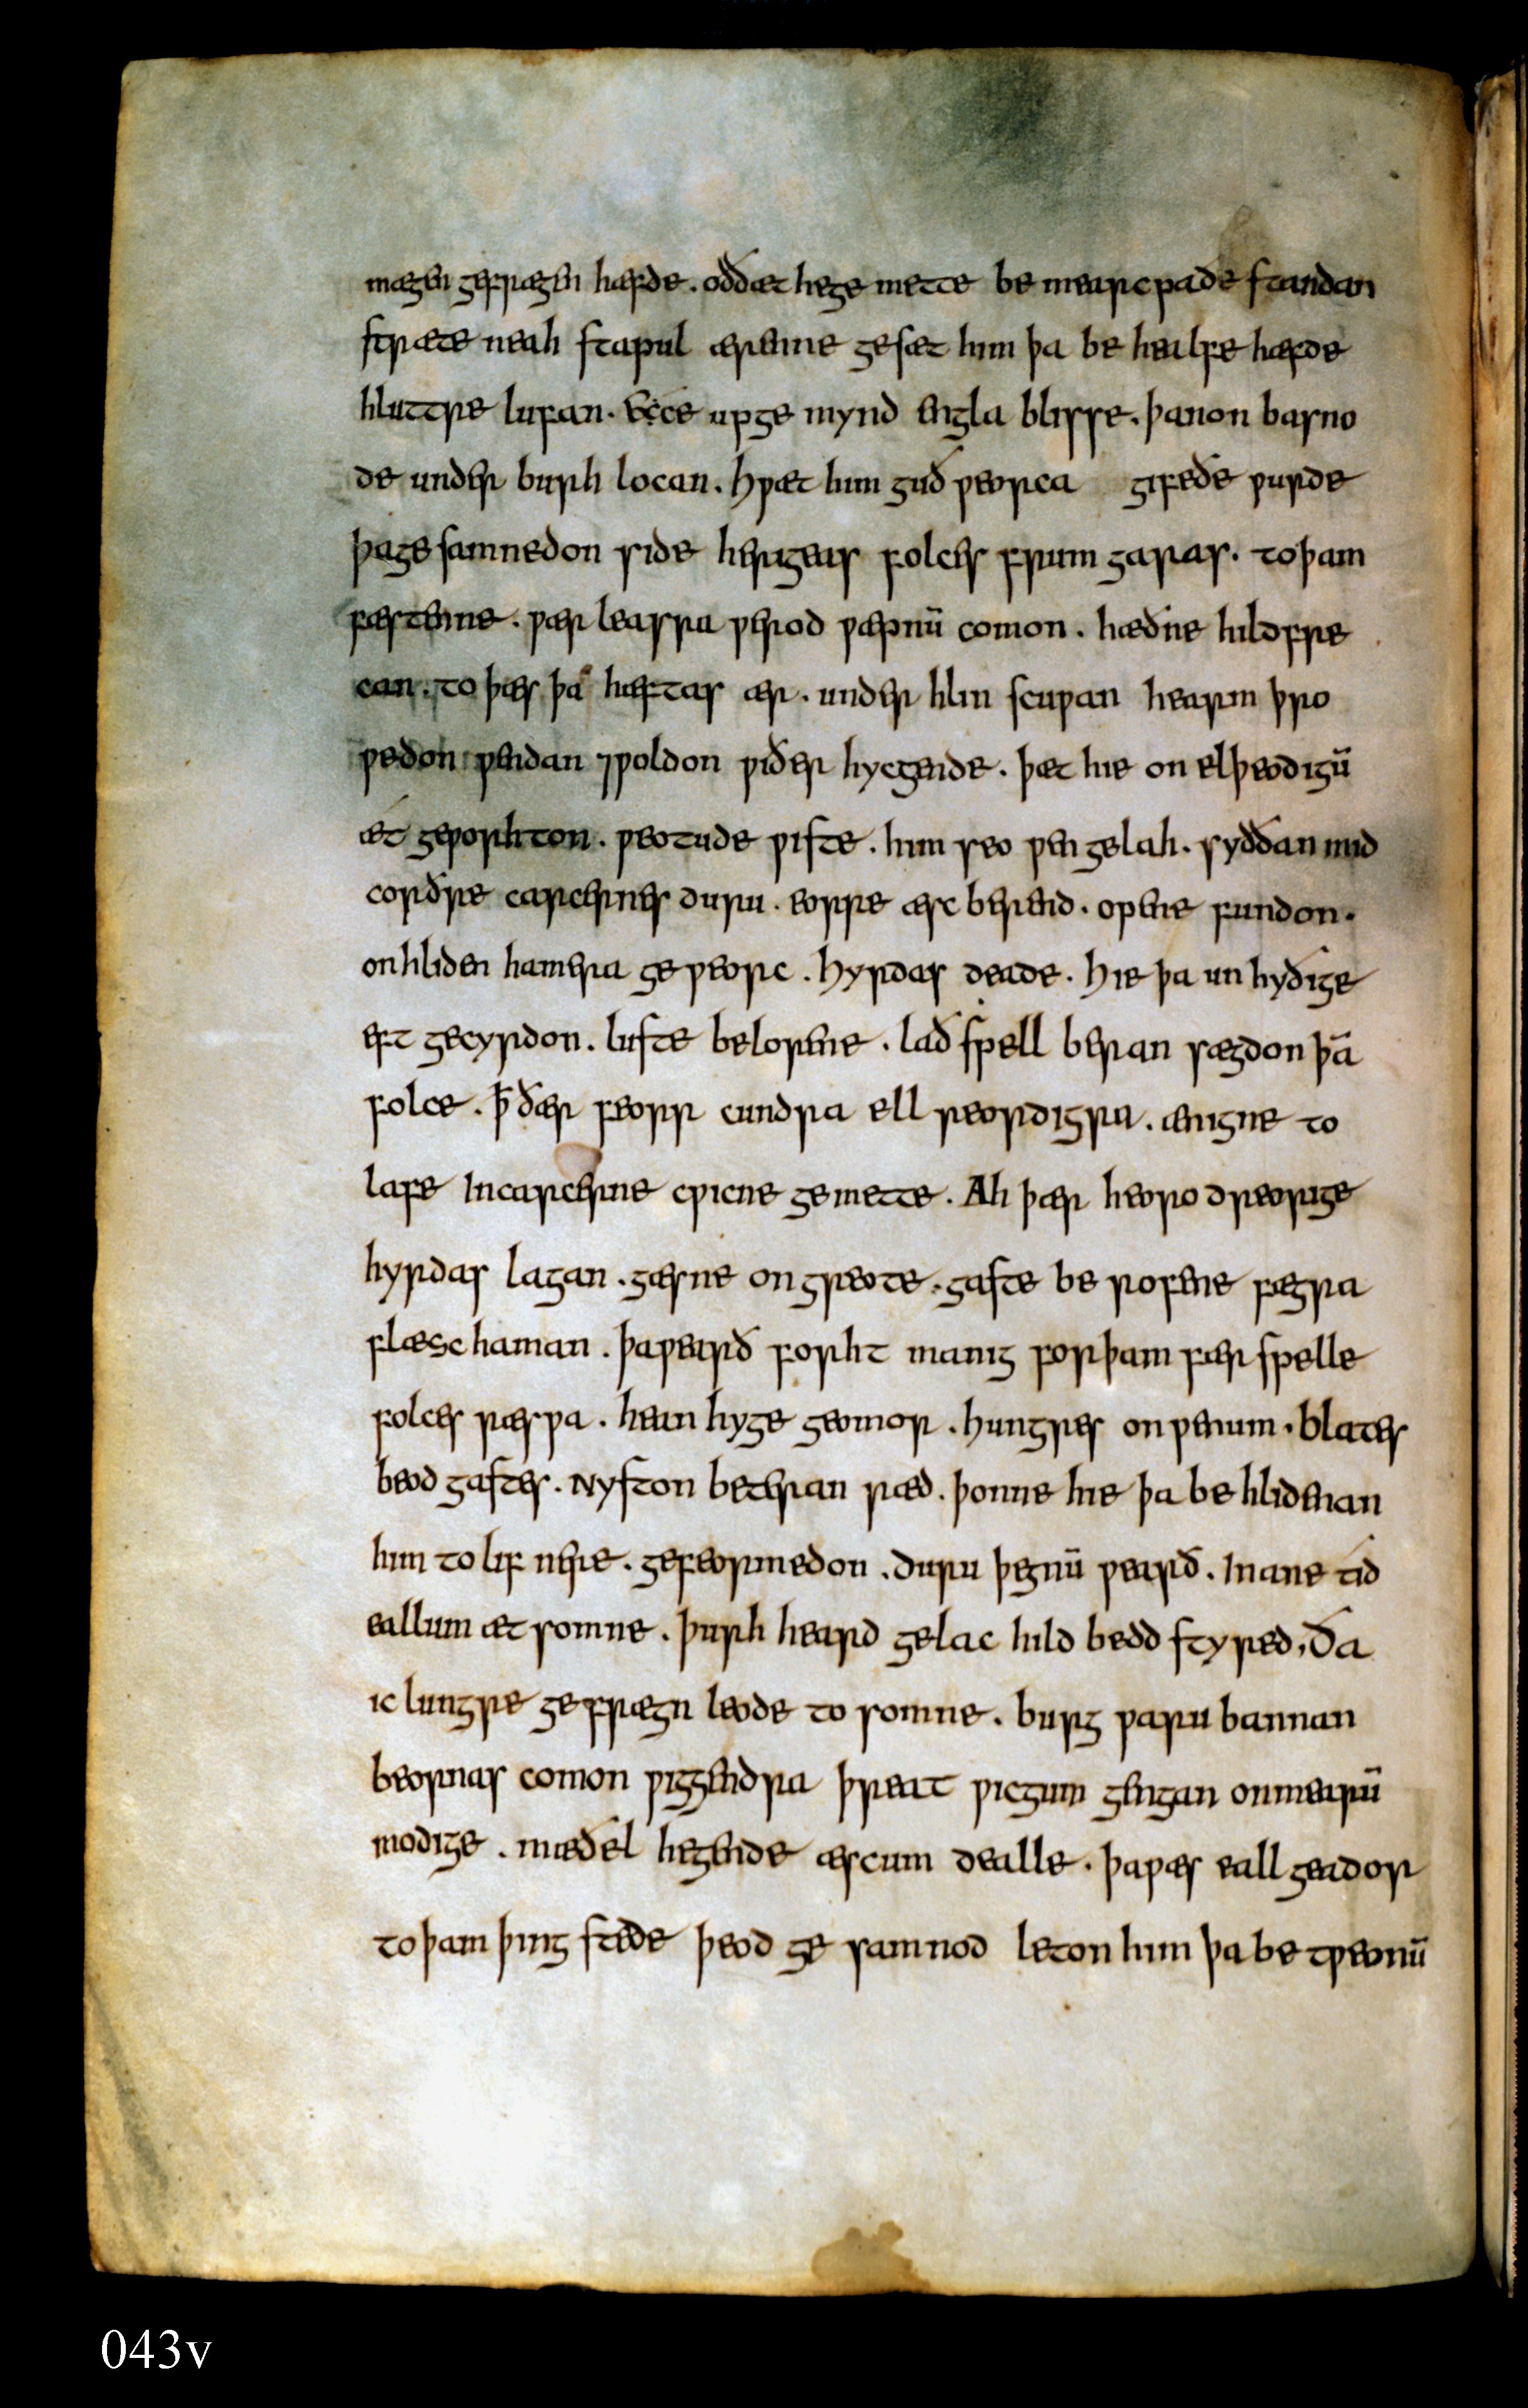 mægen gefrægen hæfde. oððæt hege mette be mearcpaðe standan
stræte neah stapul ærenne gesæt him þa be healfe hæfde
hluttre lufan. Ece upge mynd engla blisse. þanon basno
de under burh locan. hƿæt him guð ƿeorca gifeðe ƿurde
þage samnedon side herigeas folces frum garas. toþam
fæstenne. ƿær leasra ƿerod ƿæpnū comon. hæðne hildfre
can. to þæs þa hæftas ær. under hlin scuƿan hearm þro
ƿedon ƿendan ⁊ƿoldon ƿiðer hycgende. þæt hie on elþeodigū
æt geƿorhton. ƿeotude ƿiste. him seo ƿen gelah. syððan mid
corðre carcernes duru. eorre æsc berend. opene fundon.
onhliden hamera ge ƿeorc. hyrdas deade. hie þa un hyðige
eft gecyrdon. luste belorene. lað spell beran sægdon þā
folce. ꝥ ðær feorr cundra ell reordigra. ænigne to
lafe Incarcerne cƿicne ge mette. Ah þær heoro dreorige
hyrdas lagan. gæsne on greote. gaste be rofene fægra
flæsc haman. þaƿearð forht manig forþam fær spelle
folces ræsƿa. hean hyge geomor. hungres on ƿenum. blates
beod gastes. Nyston beteran ræd. þonne hie þa be hlidenan
him to lif nere. gefeormedon. duru þegnū ƿearð. In ane tid
eallum æt somne. þurh heard gelac hild bedd styred. Ða
ic lungre ge frægn leode to somne. burg ƿaru bannan
beornas comon ƿiggendra þreat ƿicgum gengan onmearū
modige. mæðel hegende æscum dealle. þaƿæs eall geador
to þam þing stede þeod ge samnod leton him þa be tƿeonū
043v